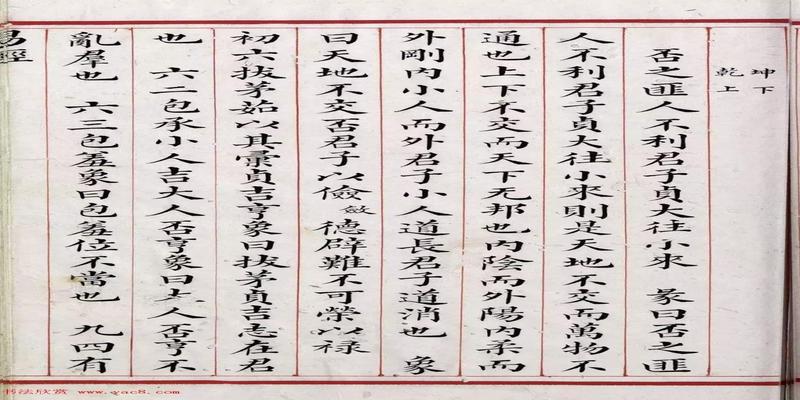 坤下
乾上
否之匪人不利君子貞大往小來 彖曰否之匪
人不利君子貞大往小來則是天地不交而萬物不
通也上下不交而天下无邦也內陰而外陽內柔而
外剛內小人而外君子小人道長君子道消也 象
曰天地不交否君子以儉德辟難不可榮以禄
初六拔茅茹以其彙貞吉亨象曰拔茅貞吉志在君
也 六二包承小人吉大人否亨象曰大人否亨不
亂羣也 六三包羞象曰包羞位不當也 九四有
易經
书法欣赏 www.yac8.com